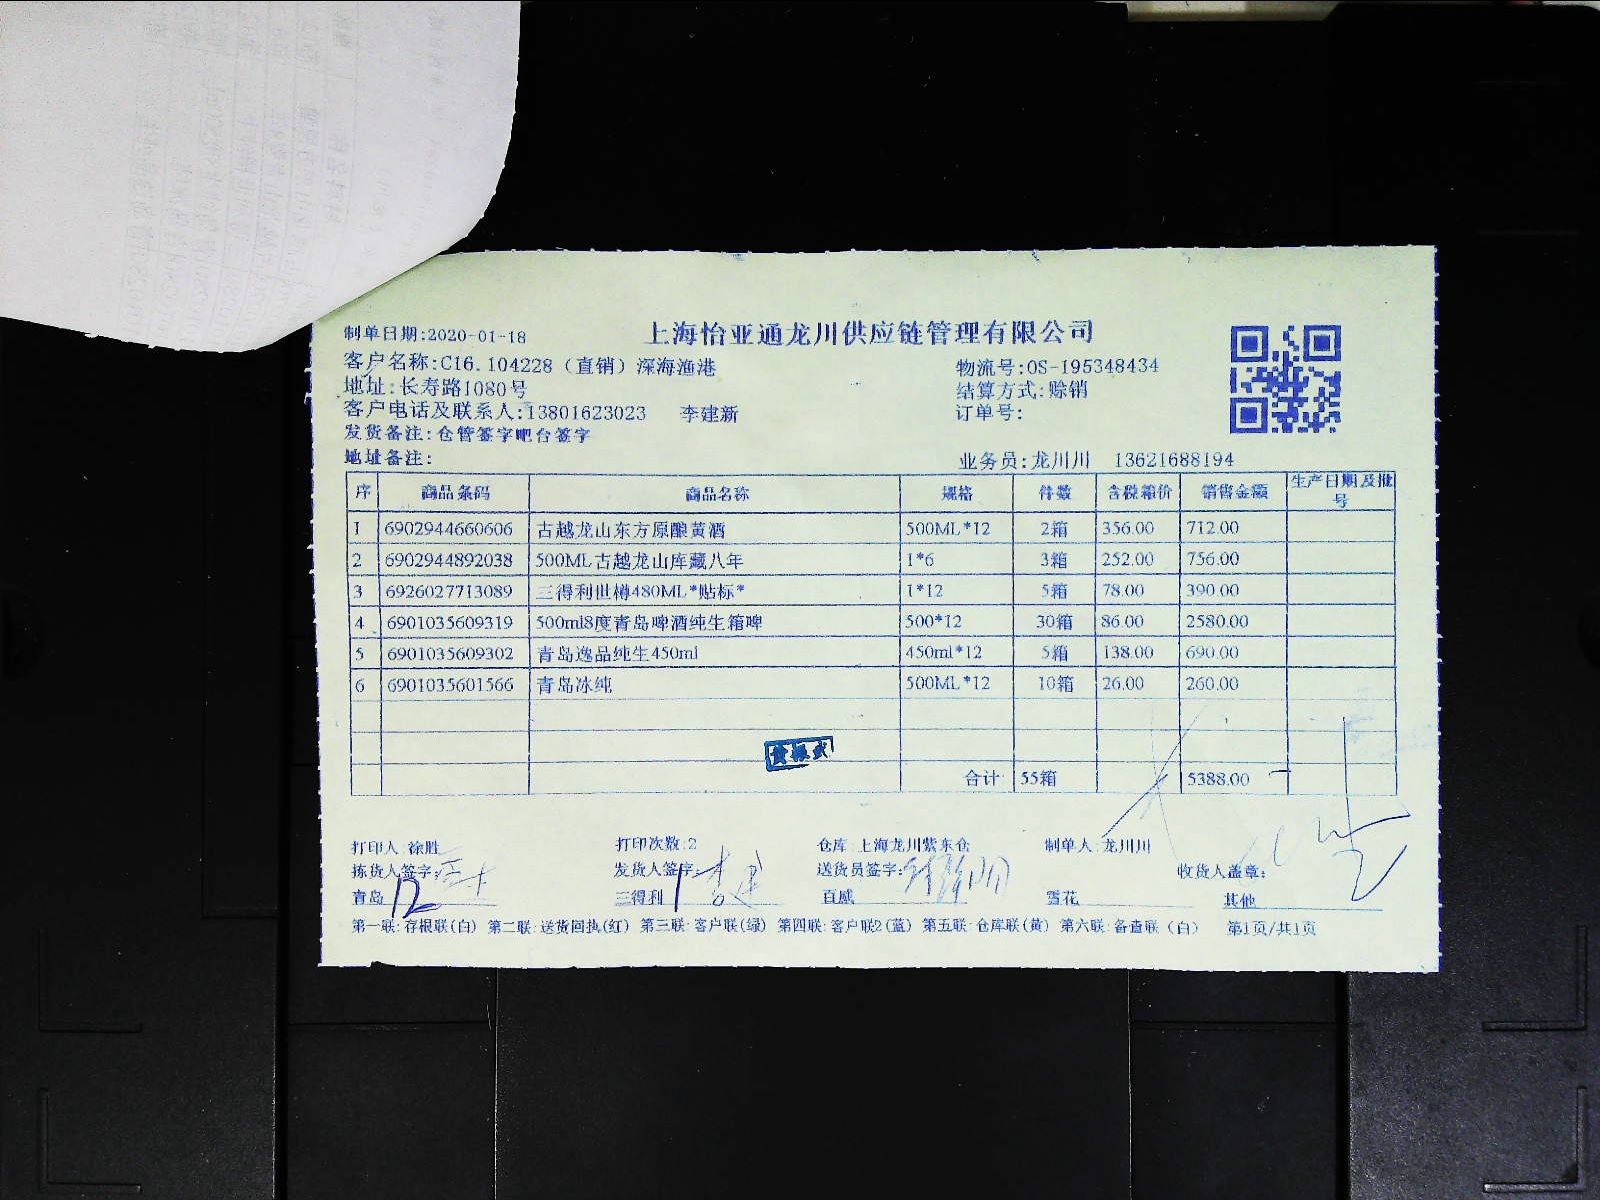 上海怡亚通龙川供应链管理有限公司
制单日期:2020-01-18
客户名称:C16.104228（直销）深海渔港 物流号:OS-195348434
地址:长寿路1080号 结算方式:赊销
客户电话及联系人:13801623023 李建新 订单号:
发货备注:仓管签字吧台签字
地址备注: 业务员:龙川川 13621688194
序 商品条码 商品名称 规格 件数 含税箱价 销售金额 生产日期及批号
1 6902944660606 古越龙山东方原酿黄酒 500ML*12 2箱 356.00 712.00
2 6902944892038 500ML古越龙山库藏八年 1*6 3箱 252.00 756.00
3 6926027713089 三得利世樽480ML*贴标* 1*12 5箱 78.00 390.00
4 6901035609319 500ml8度青岛啤酒纯生箱啤 500*12 30箱 86.00 2580.00
5 6901035609302 青岛逸品纯生450ml 450ml*12 5箱 138.00 690.00
6 6901035601566 青岛冰纯 500ML*12 10箱 26.00 260.00
合计 55箱 5388.00
打印人:徐胜 打印次数:2 仓库:上海龙川紫东仓 制单人:龙川川
拣货人签字: 发货人签字: 送货员签字: 收货人盖章:
青岛 12 三得利 1 百威 雪花 其他
第一联:存根联(白) 第二联:送货回执(红) 第三联:客户联(绿) 第四联:客户联2(蓝) 第五联:仓库联(黄) 第六联:备查联（白） 第1页/共1页